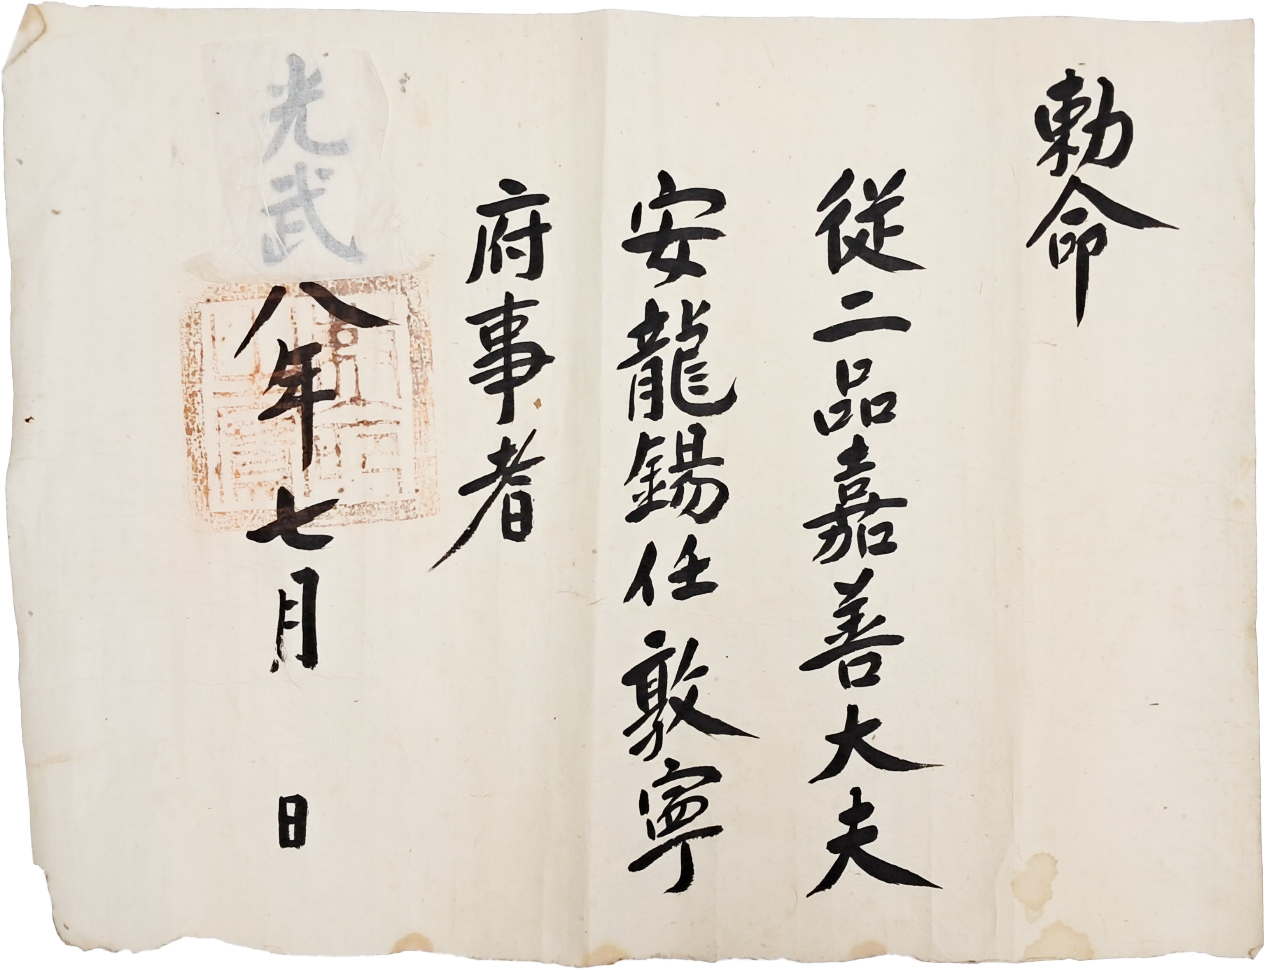 勅命
從二品嘉善大夫
安龍錫任敦寧
府事者
光武八年七月 日